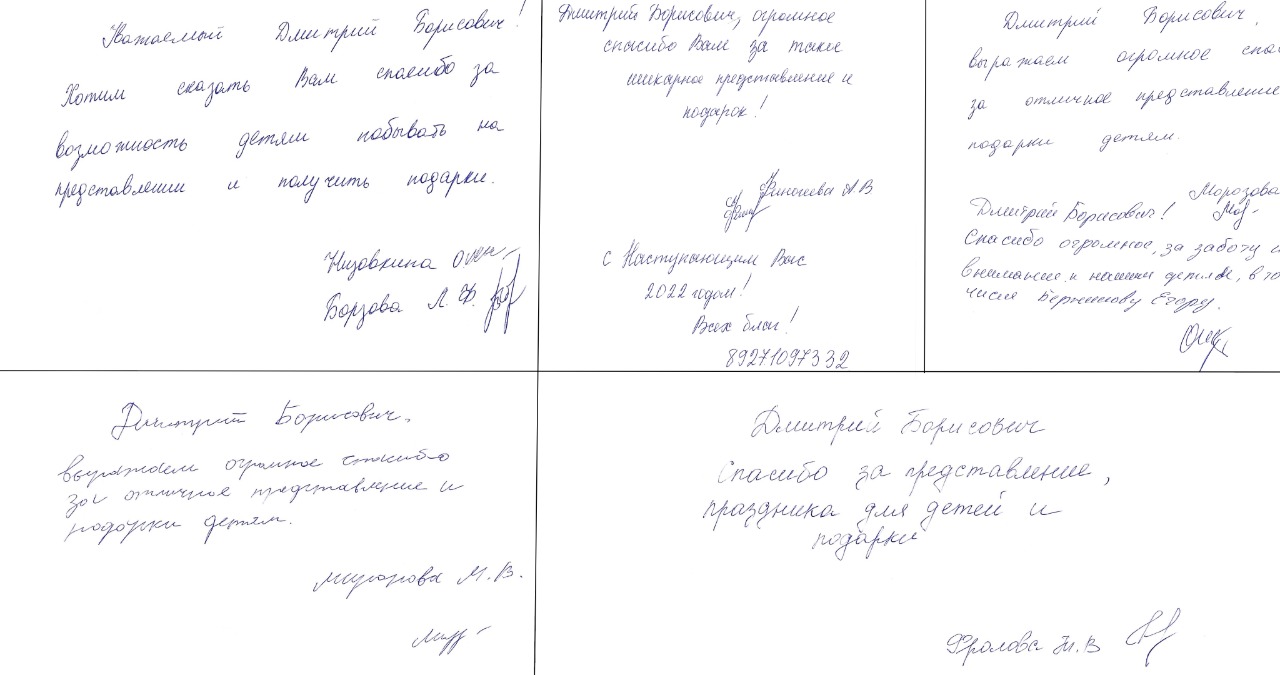 Уважаемый Дмитрий Борисович!
Хотим сказать Вам спасибо за
возможность детям побывать на
представлении и получить подарки.
Низовкина
Борзова Л.Ф.
Дмитрий Борисович, огромное
спасибо Вам за такие
шикарное представление и
подарок!
А В
С Наступающим Вас
2022 годом!
Всех благ!
89271097332
Дмитрий Борисович,
выражаем огромное спас
за отличное представление
подарки детям.
Морозова
Дмитрий Борисович!
Спасибо огромное, за заботу и
внимание к нашим детям, в то
числе Егору.
Дмитрий Борисович,
выражаем огромное спасибо
за отличное представление и
подарки детям.
М.В.
Дмитрий Борисович
Спасибо за представление,
праздника для детей и
подарки
Фролова Т.В